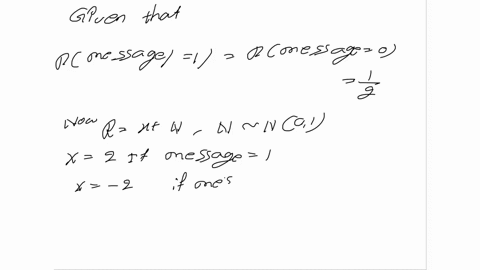 Given that
P(message) = 1) = P(message = 0)
= 1/2
Now R = x + N, N ~ N(0,1)
x = 2 if message = 1
x = -2 if mes